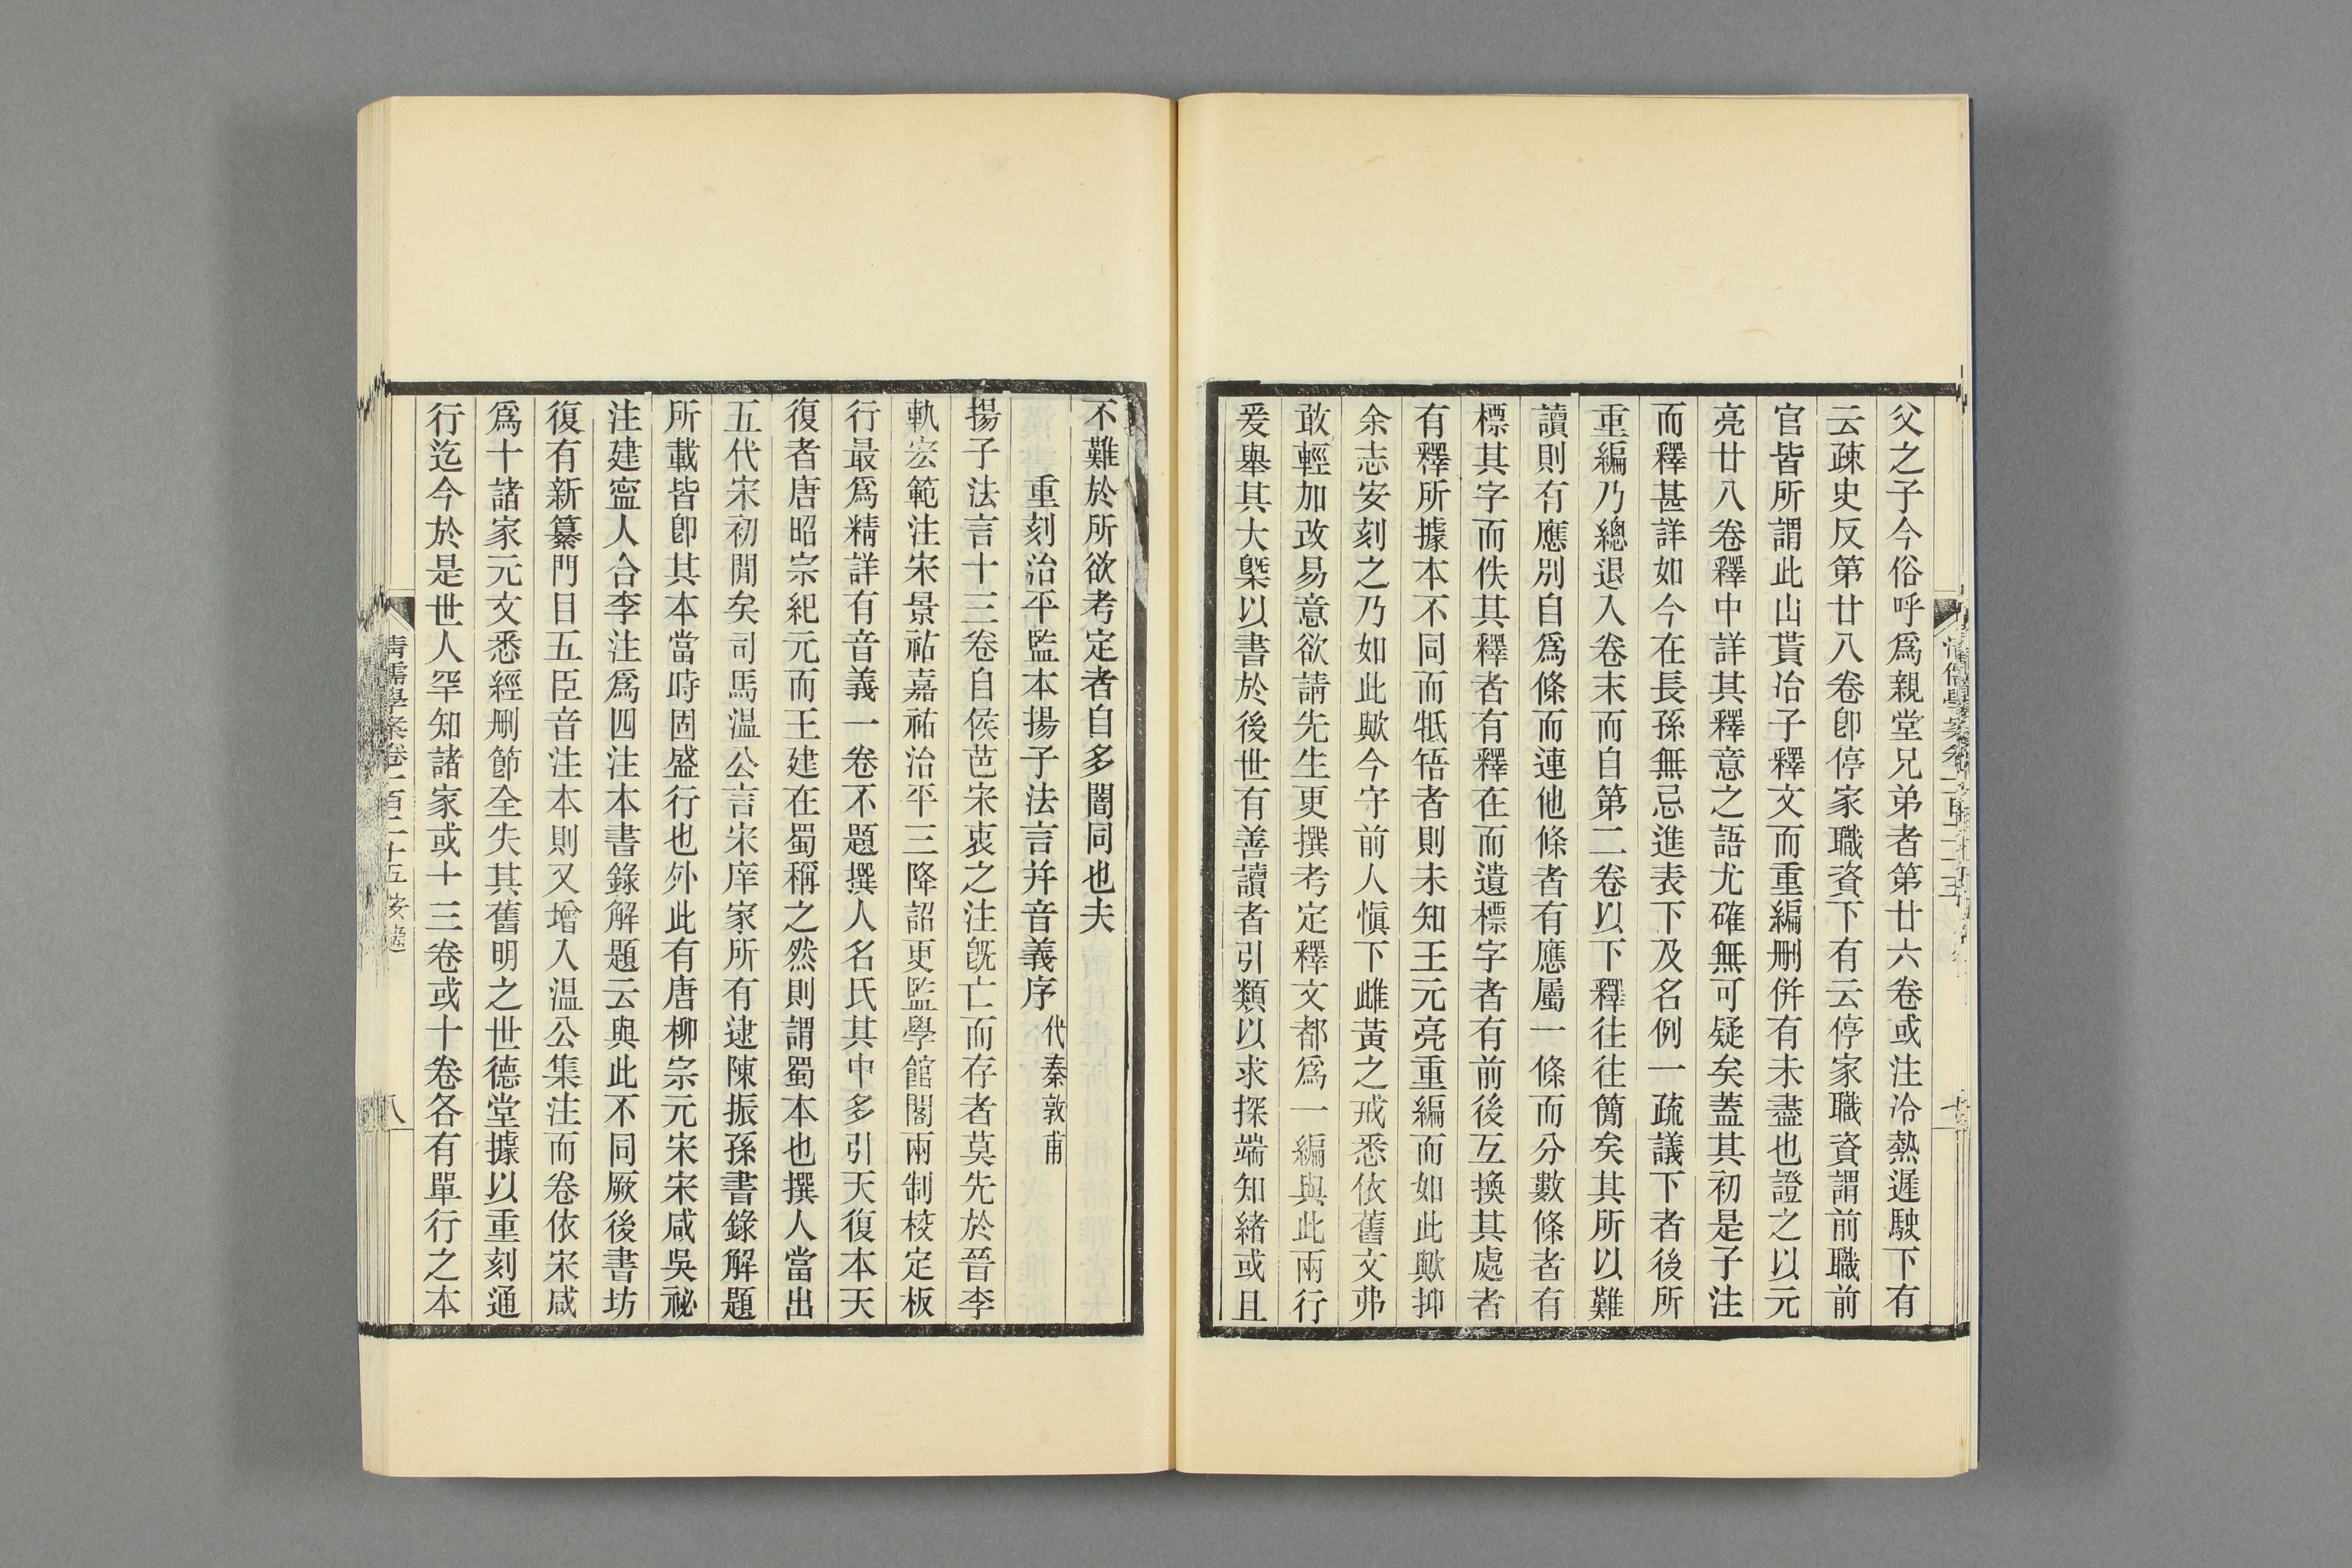 父之子今俗呼爲親堂兄弟者第廿六卷或注冷熱遲駛下有
云疎史反第廿八卷卽停家職資下有云停家職資謂前職前
官皆所謂此山貰冶子釋文而重編刪倂有未盡也證之以元
亮廿八卷釋中詳其釋意之語尤確無可疑矣蓋其初是子注
而釋甚詳如今在長孫無忌進表下及名例一疏議下者後所
重編乃總退入卷末而自第二卷以下釋往往簡矣其所以難
讀則有應別自爲條而連他條者有應屬一條而分數條者有
標其字而佚其釋者有釋在而遺標字者有前後互換其處者
有釋所據本不同而牴牾者則未知王元亮重編而如此歟抑
余志安刻之乃如此歟今守前人愼下雌黃之戒悉依舊文弗
敢輕加改易意欲請先生更撰考定釋文都爲一編與此兩行
爰舉其大槩以書於後世有善讀者引類以求探端知緒或且
不難於所欲考定者自多闇同也夫
重刻治平監本揚子法言幷音義序 代秦敦甫
揚子法言十三卷自侯芭宋衷之注旣亡而存者莫先於晉李
軌宏範注宋景祐嘉祐治平三降詔更監學館閣兩制校定板
行最爲精詳有音義一卷不題撰人名氏其中多引天復本天
復者唐昭宗紀元而王建在蜀稱之然則謂蜀本也撰人當出
五代宋初閒矣司馬温公言宋庠家所有逮陳振孫書錄解題
所載皆卽其本當時固盛行也外此有唐柳宗元宋宋咸吳祕
注建寧人合李注爲四注本書錄解題云與此不同厥後書坊
復有新纂門目五臣音注本則又增入温公集注而卷依宋咸
爲十諸家元文悉經刪節全失其舊明之世德堂據以重刻通
行迄今於是世人罕知諸家或十三卷或十卷各有單行之本
清儒學案卷一百二十五 安
八